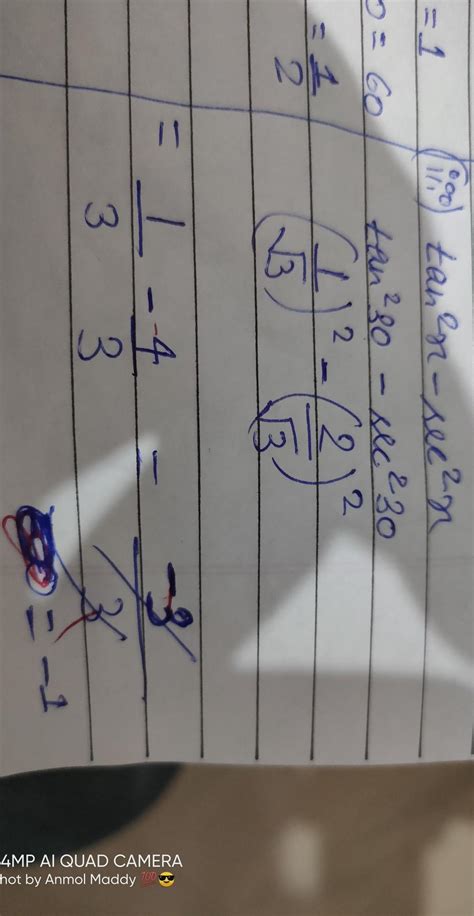 = 1
0 = 60
= 1/2
(iii) tan²x - sec²x
tan²30 - sec²30
(1/√3)² - (2/√3)²
= 1/3 - 4/3 - -3/3
= -1
4MP AI QUAD CAMERA
hot by Anmol Maddy 💯😎